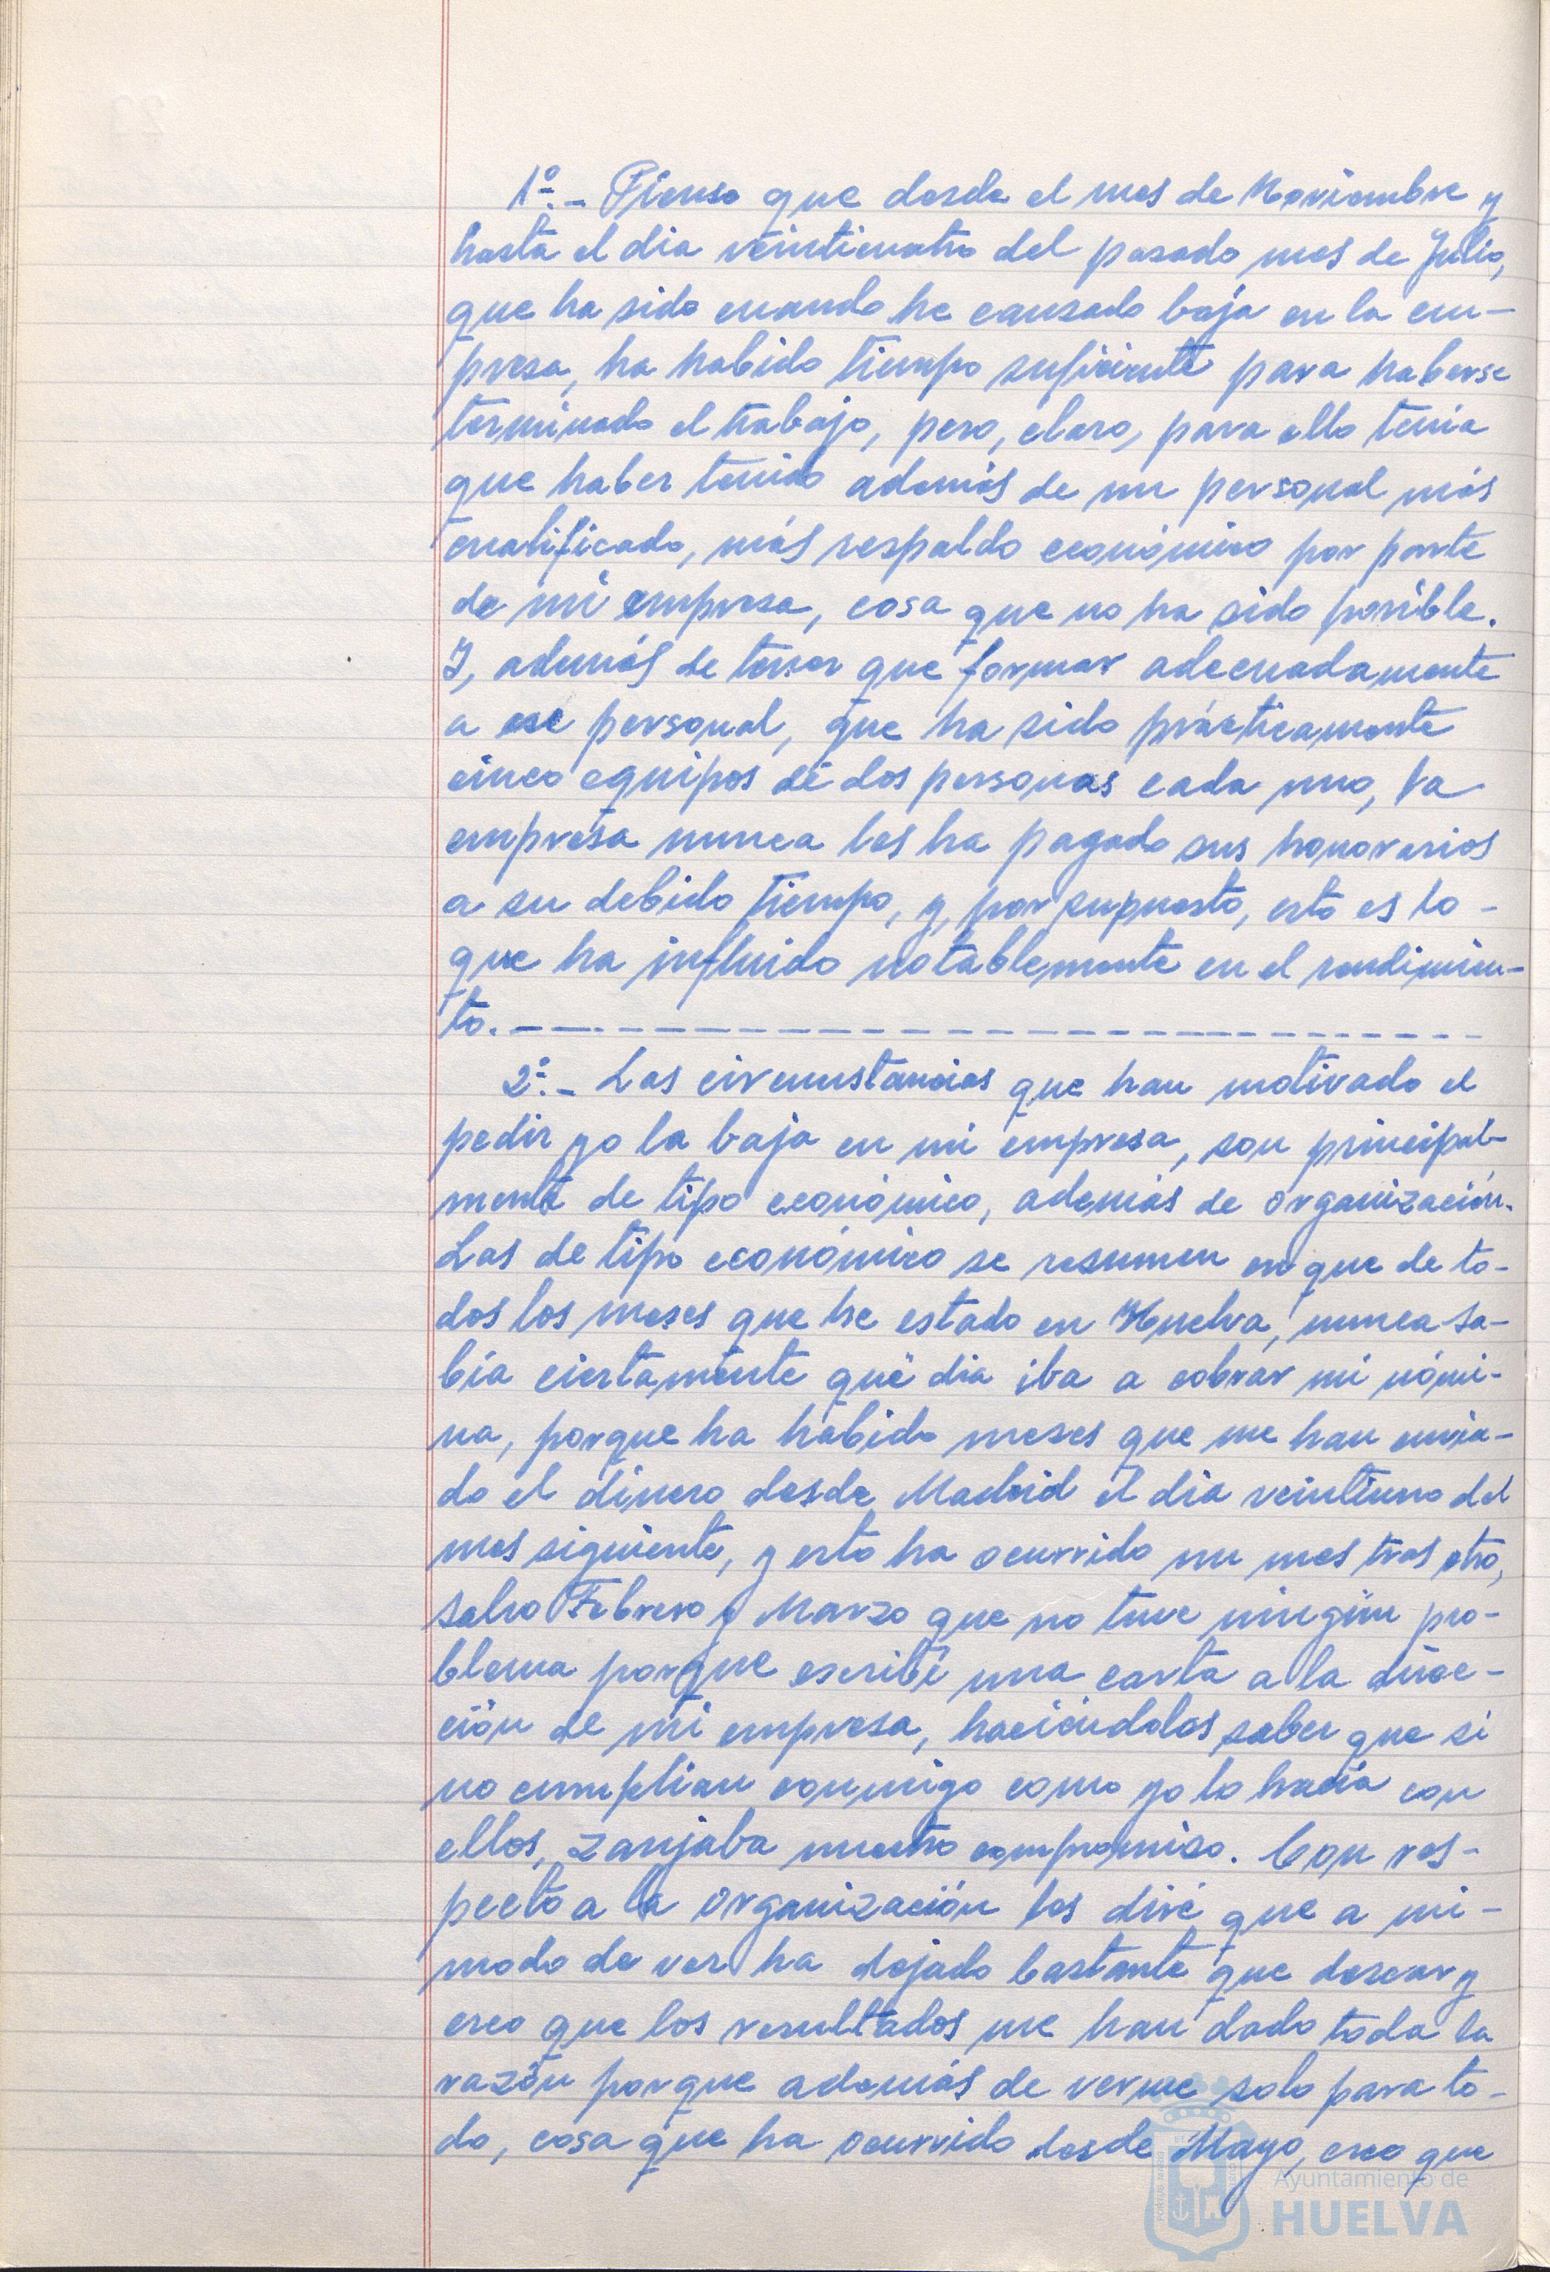 1º.- Pienso que desde el mes de Noviembre y
hasta el dia veinticuatro del pasado mes de Julio,
que ha sido cuando he causado baja en la em-
presa, ha habido tiempo suficiente para haberse
terminado el trabajo, pero, claro, para ello tenia
que haber tenido además de un personal más
cualificado, más respaldo económico por parte
de mi empresa, cosa que no ha sido posible.
Y, además de tener que formar adecuadamente
a ese personal, que ha sido prácticamente
cinco equipos de dos personas cada uno, la
empresa nunca les ha pagado sus honorarios
a su debido tiempo, y, por supuesto, esto es lo -
que ha influido notablemente en el rendimien-
to. - - - - - - - - - - - - - - - - - - - -
2º.- Las circunstancias que han motivado el
pedir yo la baja en mi empresa, son principal-
mente de tipo económico, además de organización.
Las de tipo económico se resumen en que de to-
dos los meses que he estado en Huelva, nunca sa-
bía ciertamente qué dia iba a cobrar mi nómi-
na, porque ha habido meses que me han envia-
do el dinero desde Madrid el dia veintiuno del
mes siguiente, y esto ha ocurrido un mes tras otro,
salvo Febrero y Marzo que no tuve ningún pro-
blema porque escribí una carta a la direc-
ción de mi empresa, haciéndoles saber que si
no cumplian conmigo como yo lo hacía con
ellos, zanjaba nuestro compromiso. Con res-
pecto a la organización les diré que a mi -
modo de ver ha dejado bastante que desear y
creo que los resultados me han dado toda la
razón porque además de verme solo para to-
do, cosa que ha ocurrido desde Mayo, creo que
Ayuntamiento de
HUELVA